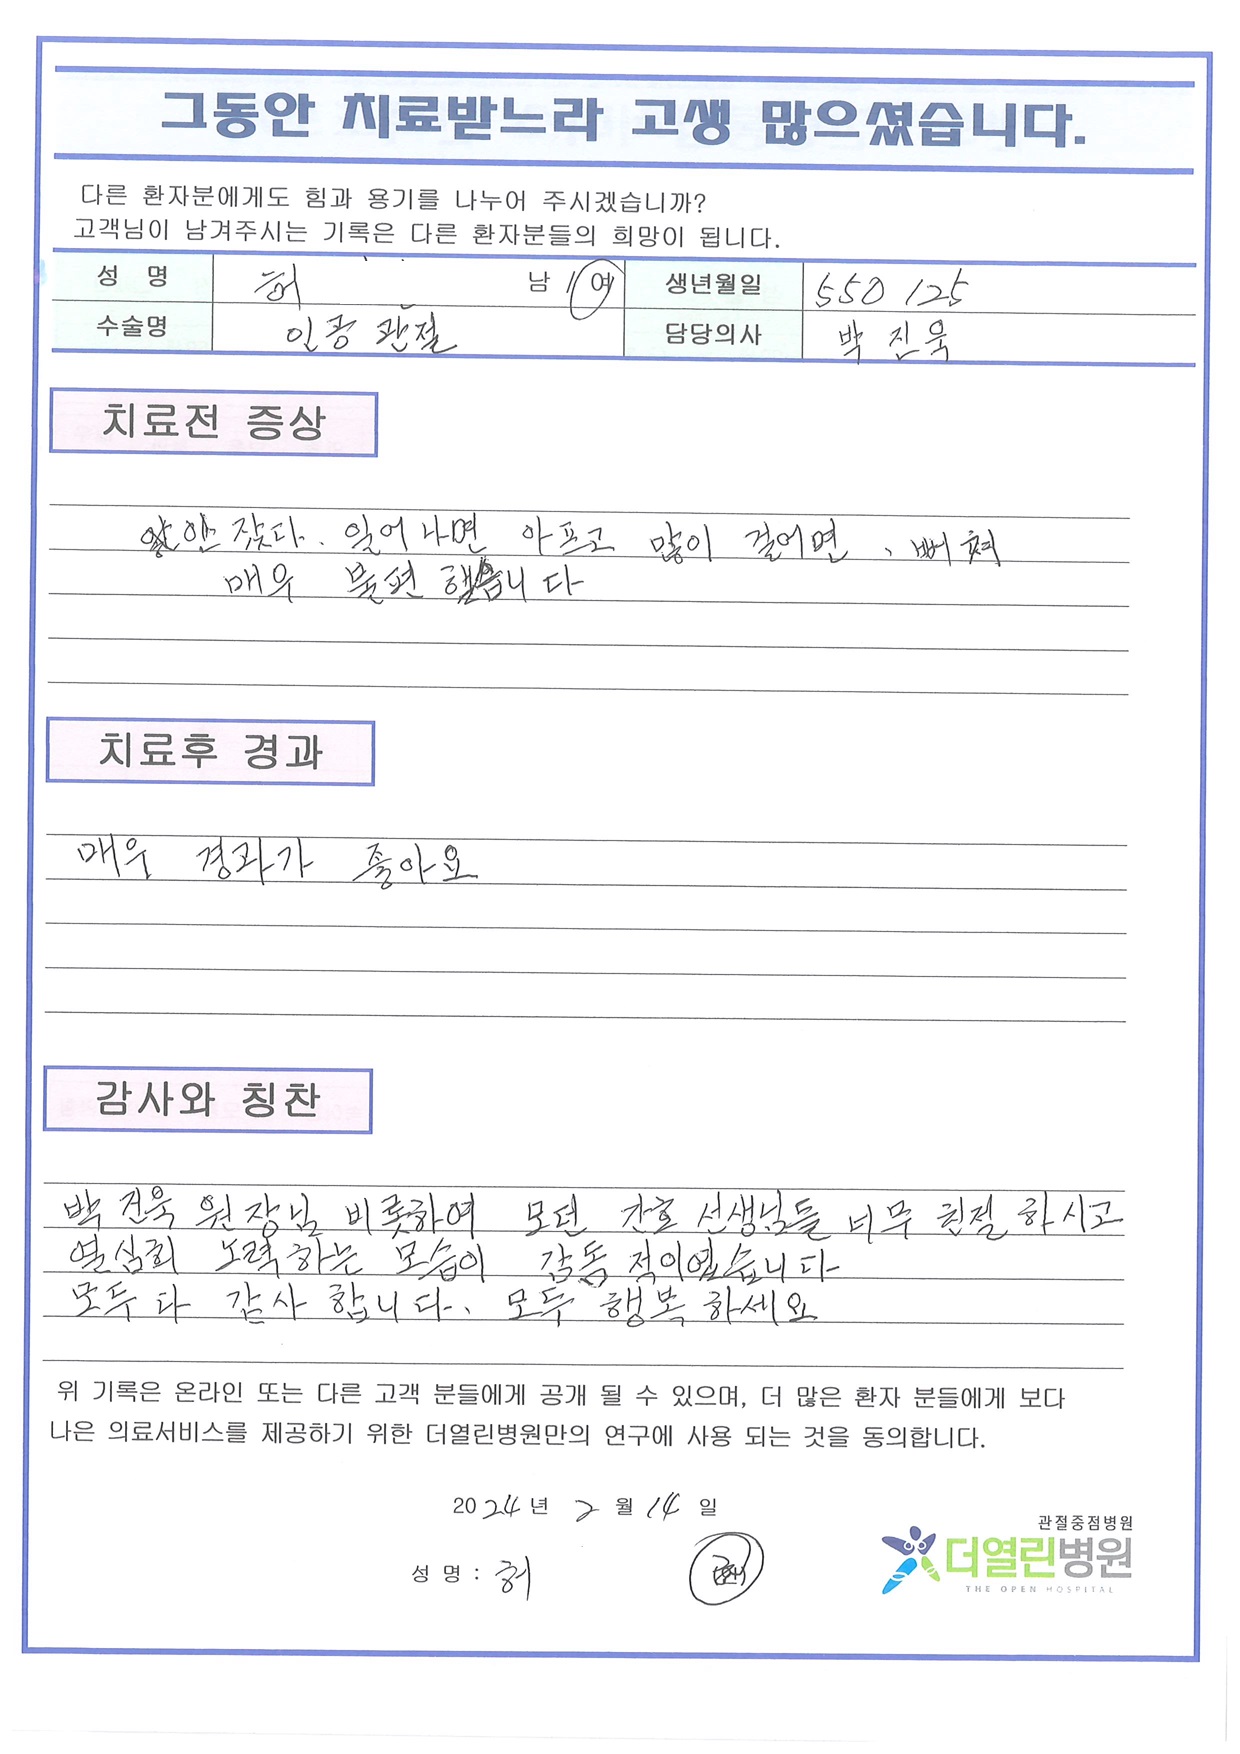 그동안 치료받느라 고생 많으셨습니다.
다른 환자분에게도 힘과 용기를 나누어 주시겠습니까?
고객님이 남겨주시는 기록은 다른 환자분들의 희망이 됩니다.
성 명 허 남 / 여 생년월일 550125
수술명 인공관절 담당의사 박진욱
치료전 증상
앉았다. 일어나면 아프고 많이 걸어면,
매우 불편했습니다
치료후 경과
매우 경과가 좋아요
감사와 칭찬
박진욱 원장님 비롯하여 모던 간호선생님들 너무 친절하시고
열심히 노력하는 모습이 감동적이였습니다
모두다 감사합니다. 모두 행복하세요
위 기록은 온라인 또는 다른 고객 분들에게 공개 될 수 있으며, 더 많은 환자 분들에게 보다
나은 의료서비스를 제공하기 위한 더열린병원만의 연구에 사용 되는 것을 동의합니다.
2024년 2월 14일
성 명 : 허
관절중점병원
더열린병원
THE OPEN HOSPITAL